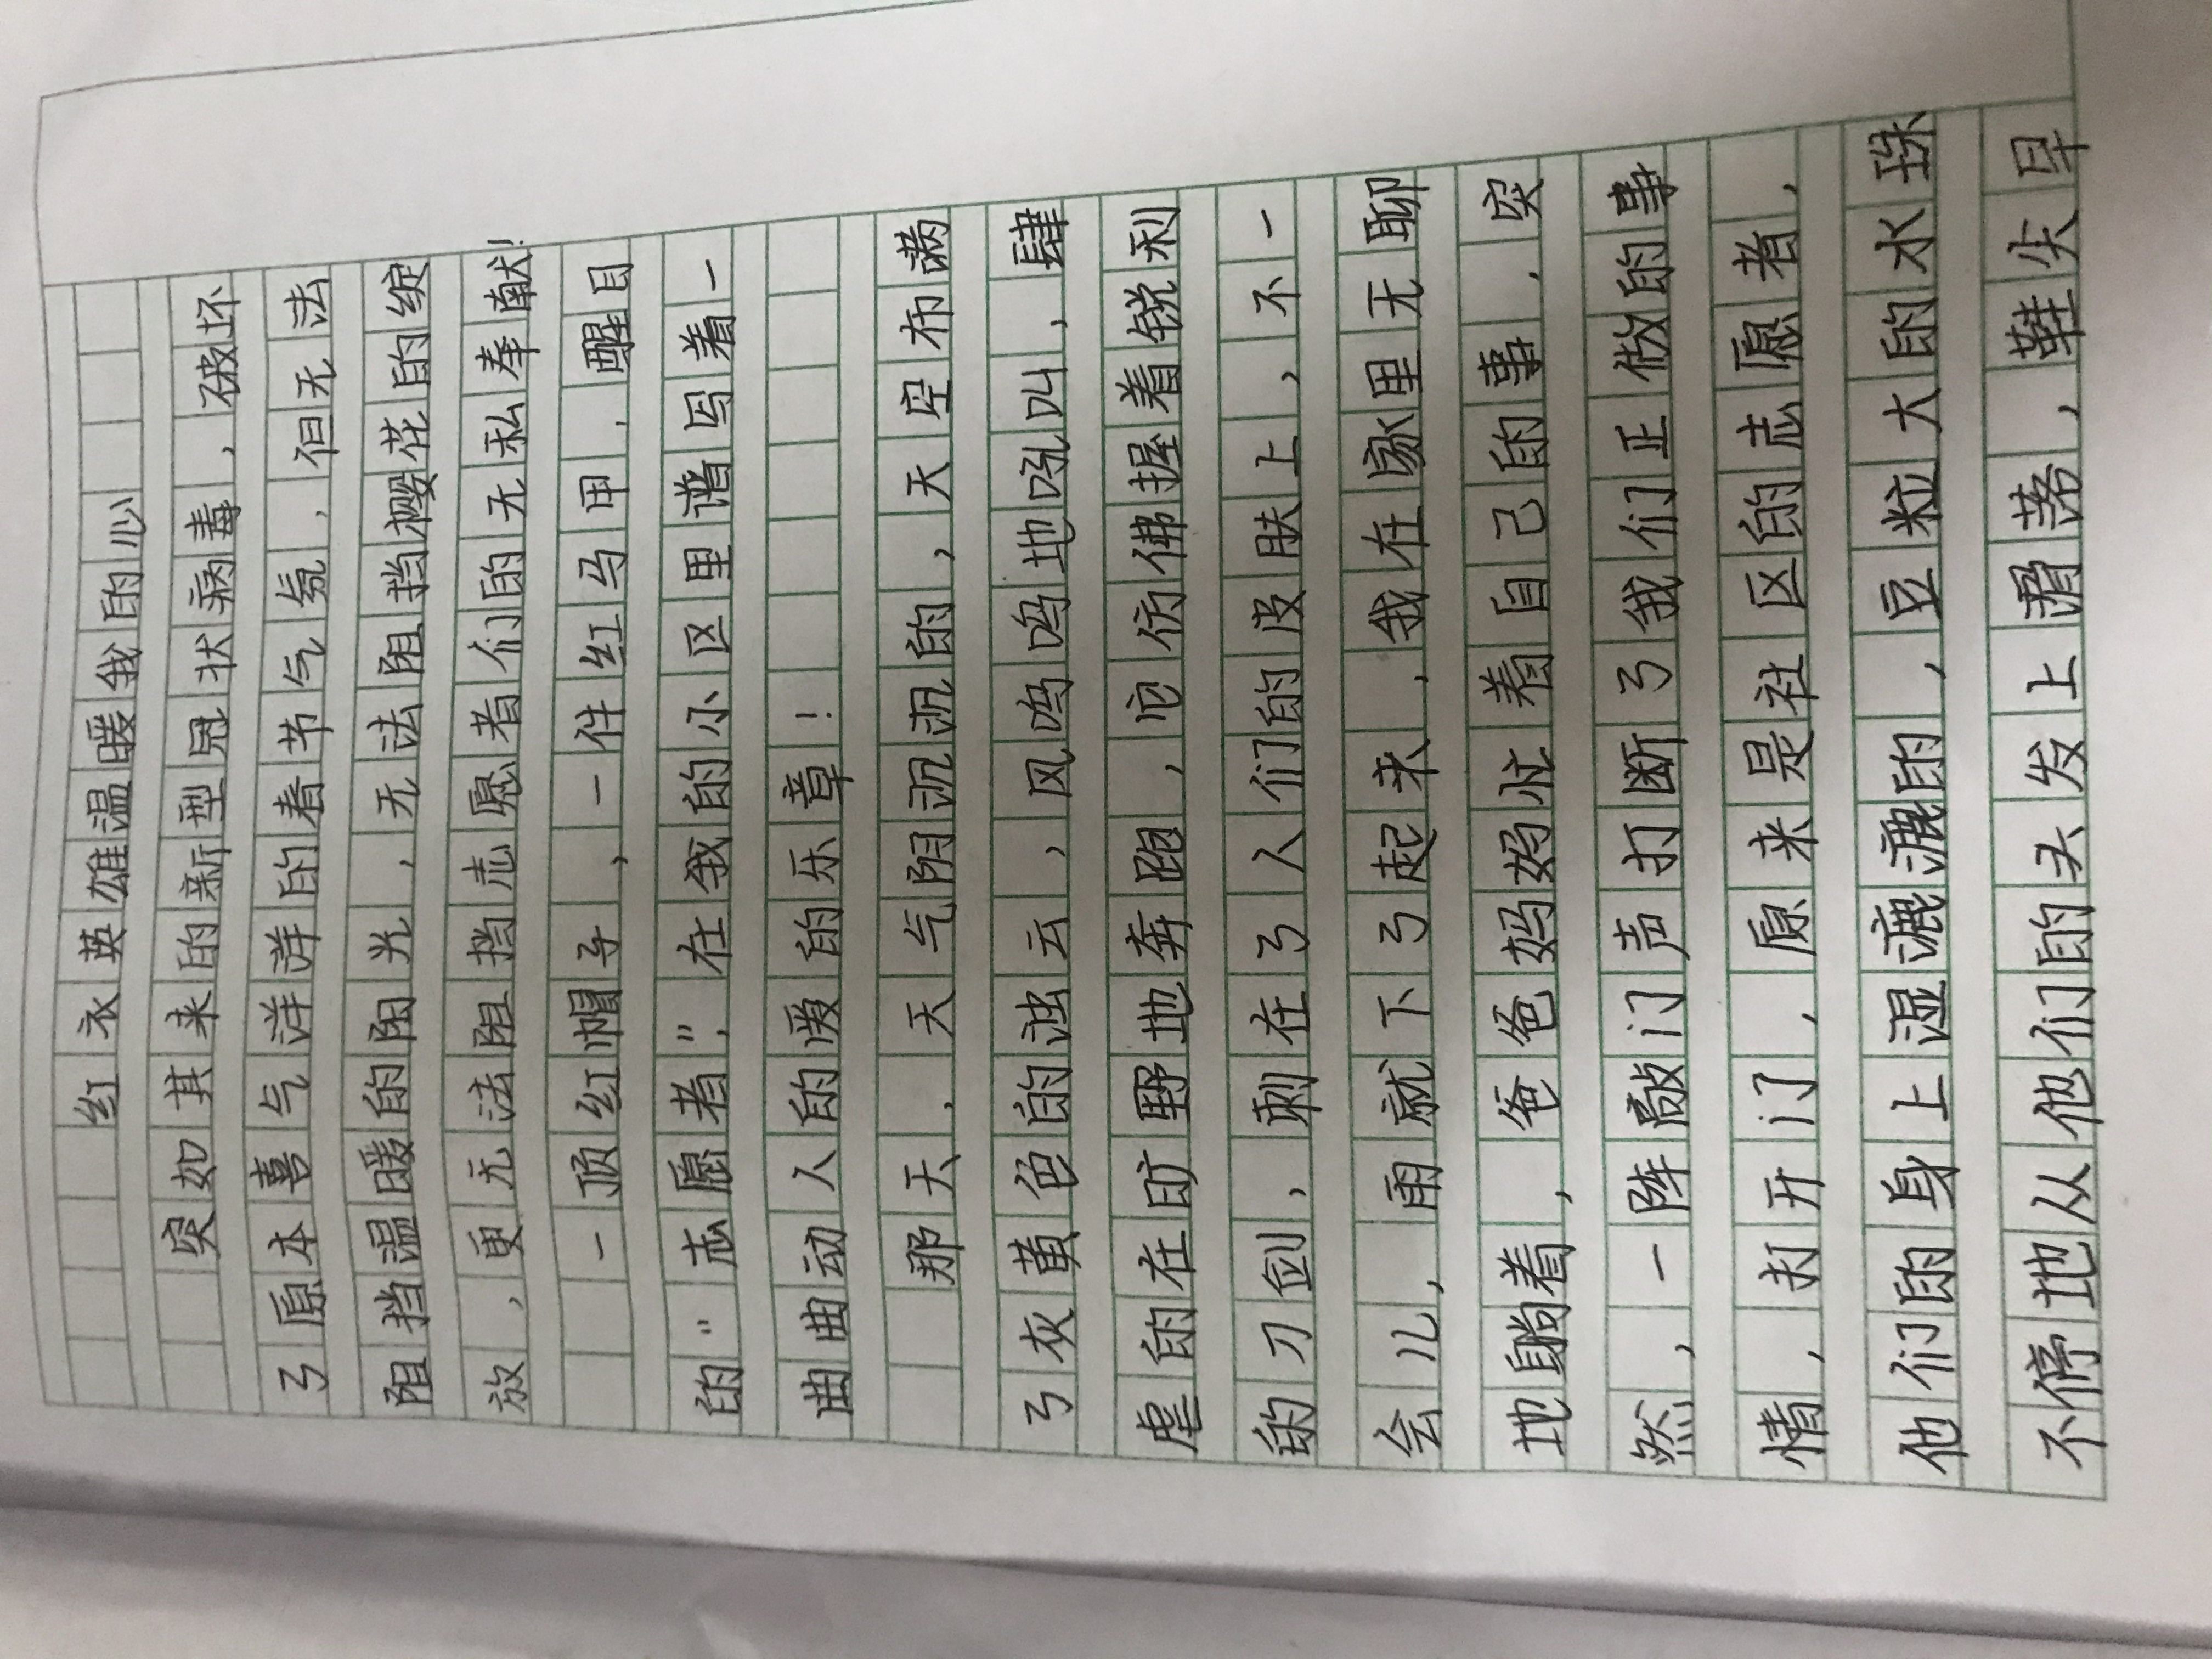 红衣英雄温暖我的心
突如其来的新型冠状病毒，破坏
了原本喜气洋洋的春节气氛，但无法
阻挡温暖的阳光，无法阻挡樱花的绽
放，更无法阻挡志愿者们的无私奉献！
一顶红帽子，一件红马甲，醒目
的“志愿者”，在我的小区里谱写着一
曲曲动人的暖的乐章！
那天，天气阴沉沉的，天空布满
了灰黄色的浊云，风呜呜地吼叫，肆
虐的在旷野地奔跑，它仿佛握着锐利
的刀剑，刺在了人们的皮肤上，不一
会儿，雨就下了起来，我在家里无聊
地躺着，爸爸妈妈忙着自己的事，突
然，一阵敲门声打断了我们正做的事
情，打开门，原来是社区的志愿者，
他们的身上湿漉漉的，豆粒大的水珠
不停地从他们的头发上滑落，鞋尖早